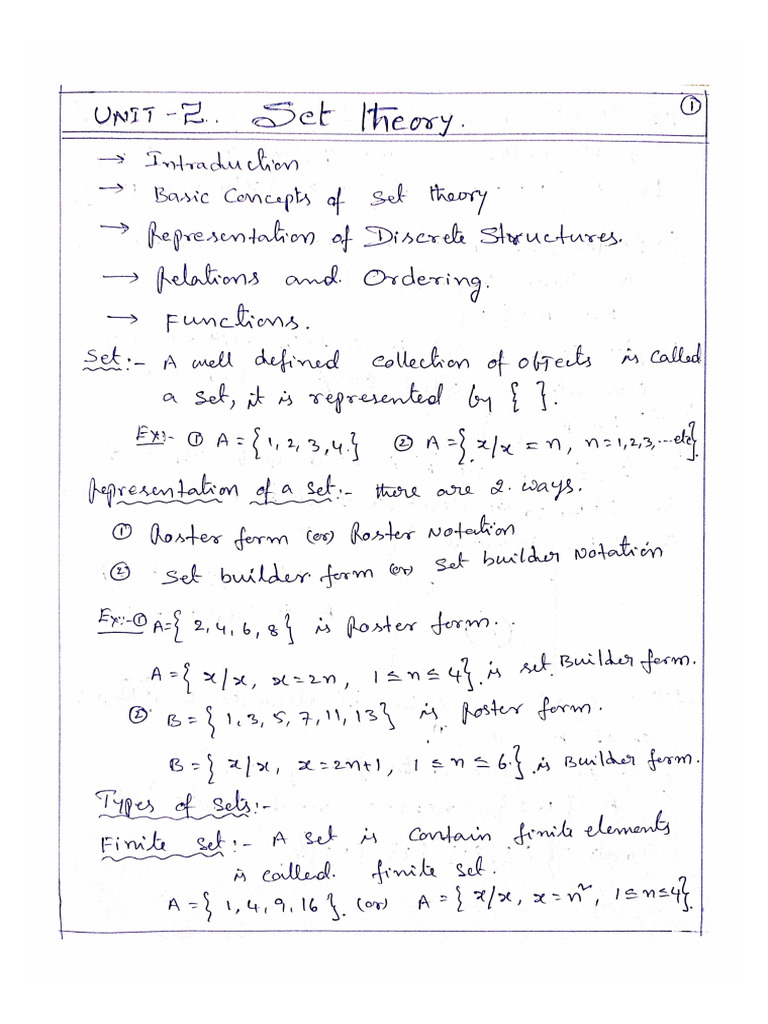 UNIT-2. Set Theory. ①
→ Intraduction
→ Basic Concepts of Set Theory
→ Representation of Discrete Structures.
→ Relations and Ordering.
→ Functions.
Set:- A well defined collection of objects is called
a set, it is represented by { }.
Ex:- ① A = {1, 2, 3, 4.} ② A = {x/x = n, n=1,2,3,...etc}.
Representation of a set:- there are 2. ways.
① Roster form (or) Roster Notation
② Set builder form (or) Set builder Notation
Ex:-① A={2, 4, 6, 8} is Roster form.
A = {x/x, x=2n, 1≤n≤4}. is set Builder form.
② B = {1, 3, 5, 7, 11, 13} is Roster form.
B = {x/x, x=2n+1, 1≤n≤6.} is Builder form.
Types of sets:-
Finite set:- A set is contain finite elements
is called. finite set.
A = {1, 4, 9, 16}. (or) A = {x/x, x=n², 1≤n≤4}.